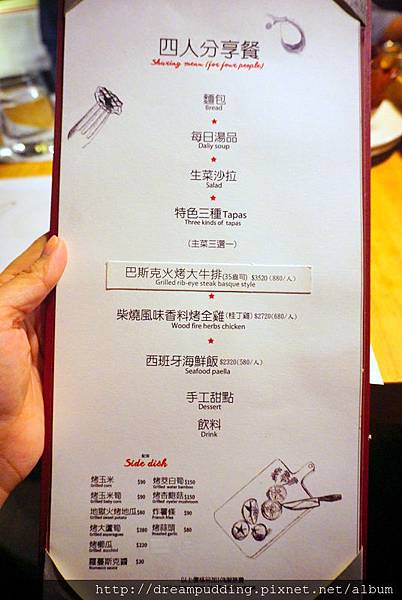 四人分享餐
Sharing menu (for four people)
麵包
Bread
每日湯品
Daliy soup
生菜沙拉
Salad
特色三種Tapas
Three kinds of tapas
(主菜三選一)
巴斯克火烤大牛排(35盎司) $3520 (880/人)
Grilled rib-eye steak basque style
柴燒風味香料烤全雞(桂丁雞) $2720(680/人)
Wood fire herbs chicken
西班牙海鮮飯 $2320(580/人)
Seafood paella
手工甜點
Dessert
飲料
Drink
配菜
Side dish
烤玉米 $90 烤茭白筍 $150
Grilled corn Grilled water bamboo
烤玉米筍 $90 烤杏鮑菇 $150
Grilled baby corn Grilled oyster mushroom
地獄火烤地瓜 $80 炸薯條 $90
Grilled sweet potato French fries
烤大蘆筍 $380 烤蒜頭 $80
Grilled asparagues Roasted garlic
烤櫛瓜 $220
Grilled zucchini
羅曼斯克醬 $30
Romesco sauce
http://dreampudding.pixnet.net/album